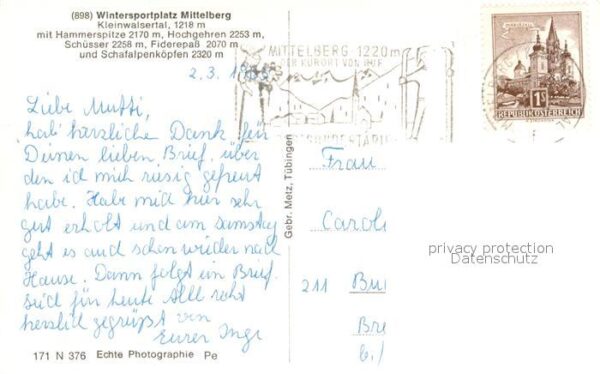 (898) Wintersportplatz Mittelberg
Kleinwalsertal, 1218 m
mit Hammerspitze 2170 m, Hochgehren 2253 m,
Schüsser 2258 m, Fiderepaß 2070 m
und Schafalpenköpfen 2320 m
2.3.
MITTELBERG 1220m
DER KURORT VON RUF
MARIAZELL
1S
REPUBLIK ÖSTERREICH
Liebe Mutti,
hab' herzliche Dank für
Deinen lieben Brief, über
den ich mich riesig gefreut
habe. Habe mich hier sehr
gut erholt und am Samstag
geht es auch schon wieder nach
Hause. Dann folgt ein Brief.
Seid für heute Alle recht
herzlich gegrüßt von
Eurer Inge
Gebr. Metz, Tübingen
Frau
Carol
211 Bu
Bre
b./
privacy protection
Datenschutz
171 N 376 Echte Photographie Pe